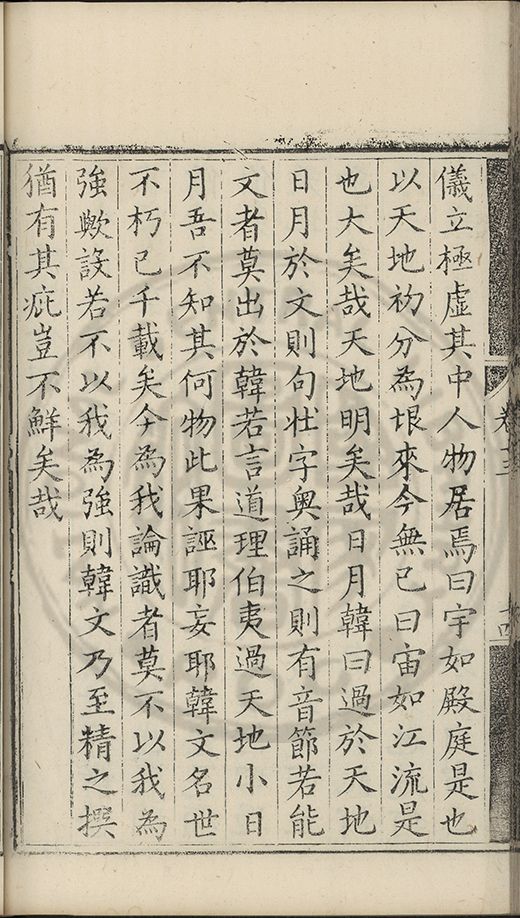 卷十三
十四
儀立極虛其中人物居焉曰宇如殿庭是也
以天地初分為垠來今無已曰宙如江流是
也大矣哉天地明矣哉日月韓曰過於天地
日月於文則句壯字奧誦之則有音節若能
文者莫出於韓若言道理伯夷過天地小日
月吾不知其何物此果誣耶妄耶韓文名世
不朽已千載矣今為我論識者莫不以我為
強歟設若不以我為強則韓文乃至精之撰
猶有其疵豈不鮮矣哉